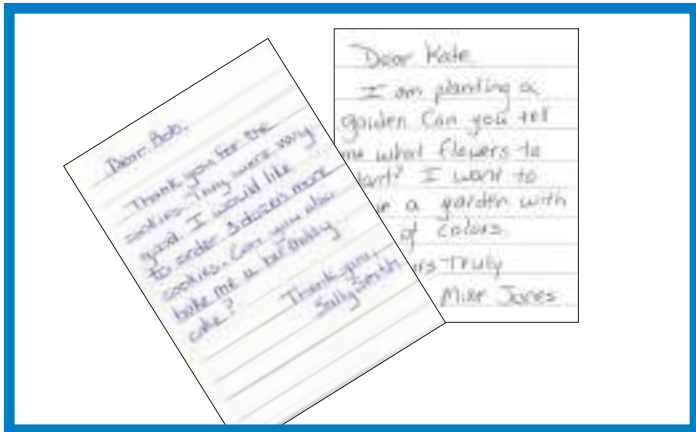 Dear Bob,
Thank you for the
cookies. They were very
good. I would like
to order 3 dozen more
cookies. Can you also
bake me a birthday
cake?
Thank you,
Sally Smith
Dear Kate
I am planting a
garden. Can you tell
what flowers to
I want to
a garden with
of colours.
Truly
Mike Jones